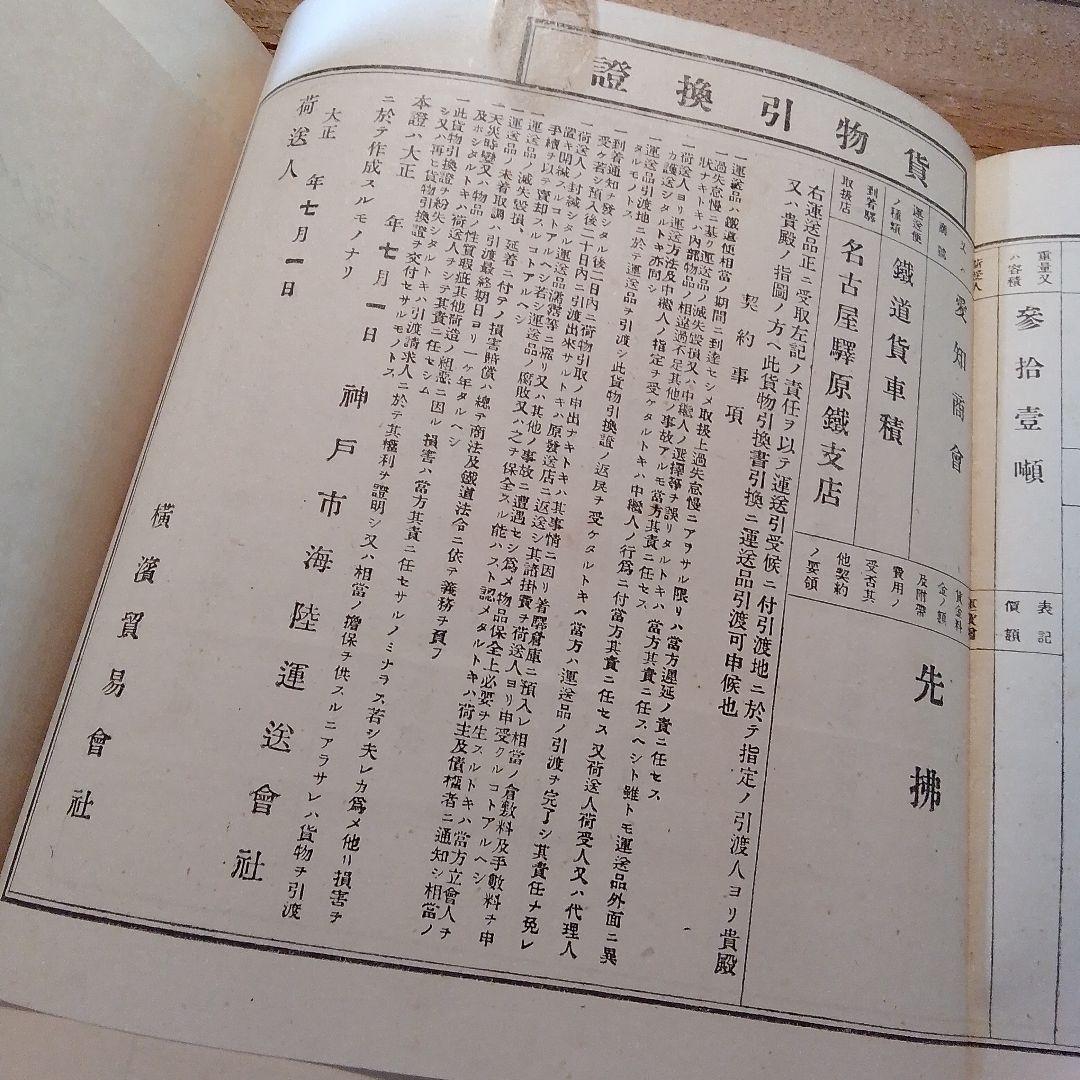 貨物引換證
重量又ハ容積
參拾壹噸
表記價額
愛知商會
運送便ノ種類
鐵道貨車積
到着驛取扱店
名古屋驛原鐵支店
及附帶費用ノ
受否其他契約ノ要領
先拂
右運送品正ニ受取左記ノ責任ヲ以テ運送引受候ニ付引渡地ニ於テ指定ノ引渡人ヨリ貴殿
又ハ貴殿ノ指圖ノ方ヘ此貨物引換書引換ニ運送品引渡可申候也
契約事項
一運送品ハ鐵道便相當ノ期間ニ到達セシメ取扱上過失怠慢ニアヲサル限リハ當方遲延ノ責ニ任セス
一過失怠慢ニ基ク運送品ノ滅失毀損又ハ中繼人ノ選擇等ヲ誤リタルトキハ當方其責ニ任スヘシト雖トモ運送品外面ニ異
狀ナキトキハ內部物品ノ相違過不足其他ノ事故アルモ當方其責ニ任セス
一荷送人ヨリ運送方法及中繼人ノ指定ヲ受ケタルトキハ中繼人ノ行爲ニ付當方其責ニ任セス又荷送人荷受人又ハ代理人
カ護送シタルトキ亦同シ
一運送品引渡地ニ於テ運送品ヲ引渡シ此貨物引換證ノ返戾ヲ受ケタルトキハ當方ハ運送品ノ引渡ヲ完了シ其責任ヲ免レ
タルモノトス
一到着通知ヲ發シタル後二日內ニ荷物引取ノ申出ナキトキハ其事情ニ因リ着驛倉庫ニ預入レ相當ノ倉敷料及手數料ヲ申
受ケ若シ預入後二十日內ニ引渡出來サルトキハ原發送店ニ返送シ其諸掛費ヲ荷送人ヨリ申受クルコトアルヘシ
一荷送人ノ封緘シタル運送品濡霑等ニ罹リ又ハ其他ノ事故ニ遭遇セシ爲メ物品保全上必要ヲ生スルトキハ當方立會人ヲ
置キ開緘スルコトアルヘシ若シ運送品ノ腐敗又ハ之ヲ保全スル能ハスト認メタルトキハ荷主及債權者ニ通知シ相當ノ
手續ヲ以テ賣却スルコトアルヘシ
一運送品ノ滅失毀損、延着ニ付テノ損害賠償ハ總テ商法及鐵道法令ニ依テ義務ヲ負フ
一運送品ノ未着取調ハ引渡最終期日ヨリ一ケ年タルヘシ
一天災時變又ハ物品ノ性質瑕疵其他荷造ノ組惡ニ因ル損害ハ當方其責ニ任セサルノミナラス若シ夫レカ爲メ他リ損害ヲ
及ホシタルトキハ荷送人ヲシテ其責ニ任セシム
一此貨物引換證ヲ紛失シタルトキハ引渡請求人ニ於テ其權利ヲ證明シ又ハ相當ノ擔保ヲ供スルニアラサレハ貨物ヲ引渡
シ又ハ再ヒ貨物引換證ヲ交付セサルモノトス
本證ハ大正 年七月一日神戶市海陸運送會社
ニ於テ作成スルモノナリ
大正 年七月一日
荷送人 橫濱貿易會社